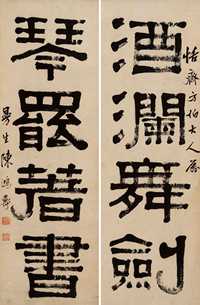 恬齋方伯大人屬
酒瀾舞劍
琴罷書
曼生陳鴻壽